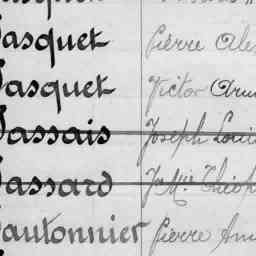 asquet Pierre Ale
asquet Victor
assais Joseph Louis
assard J. Mie Théop
autonnier Pierre Am